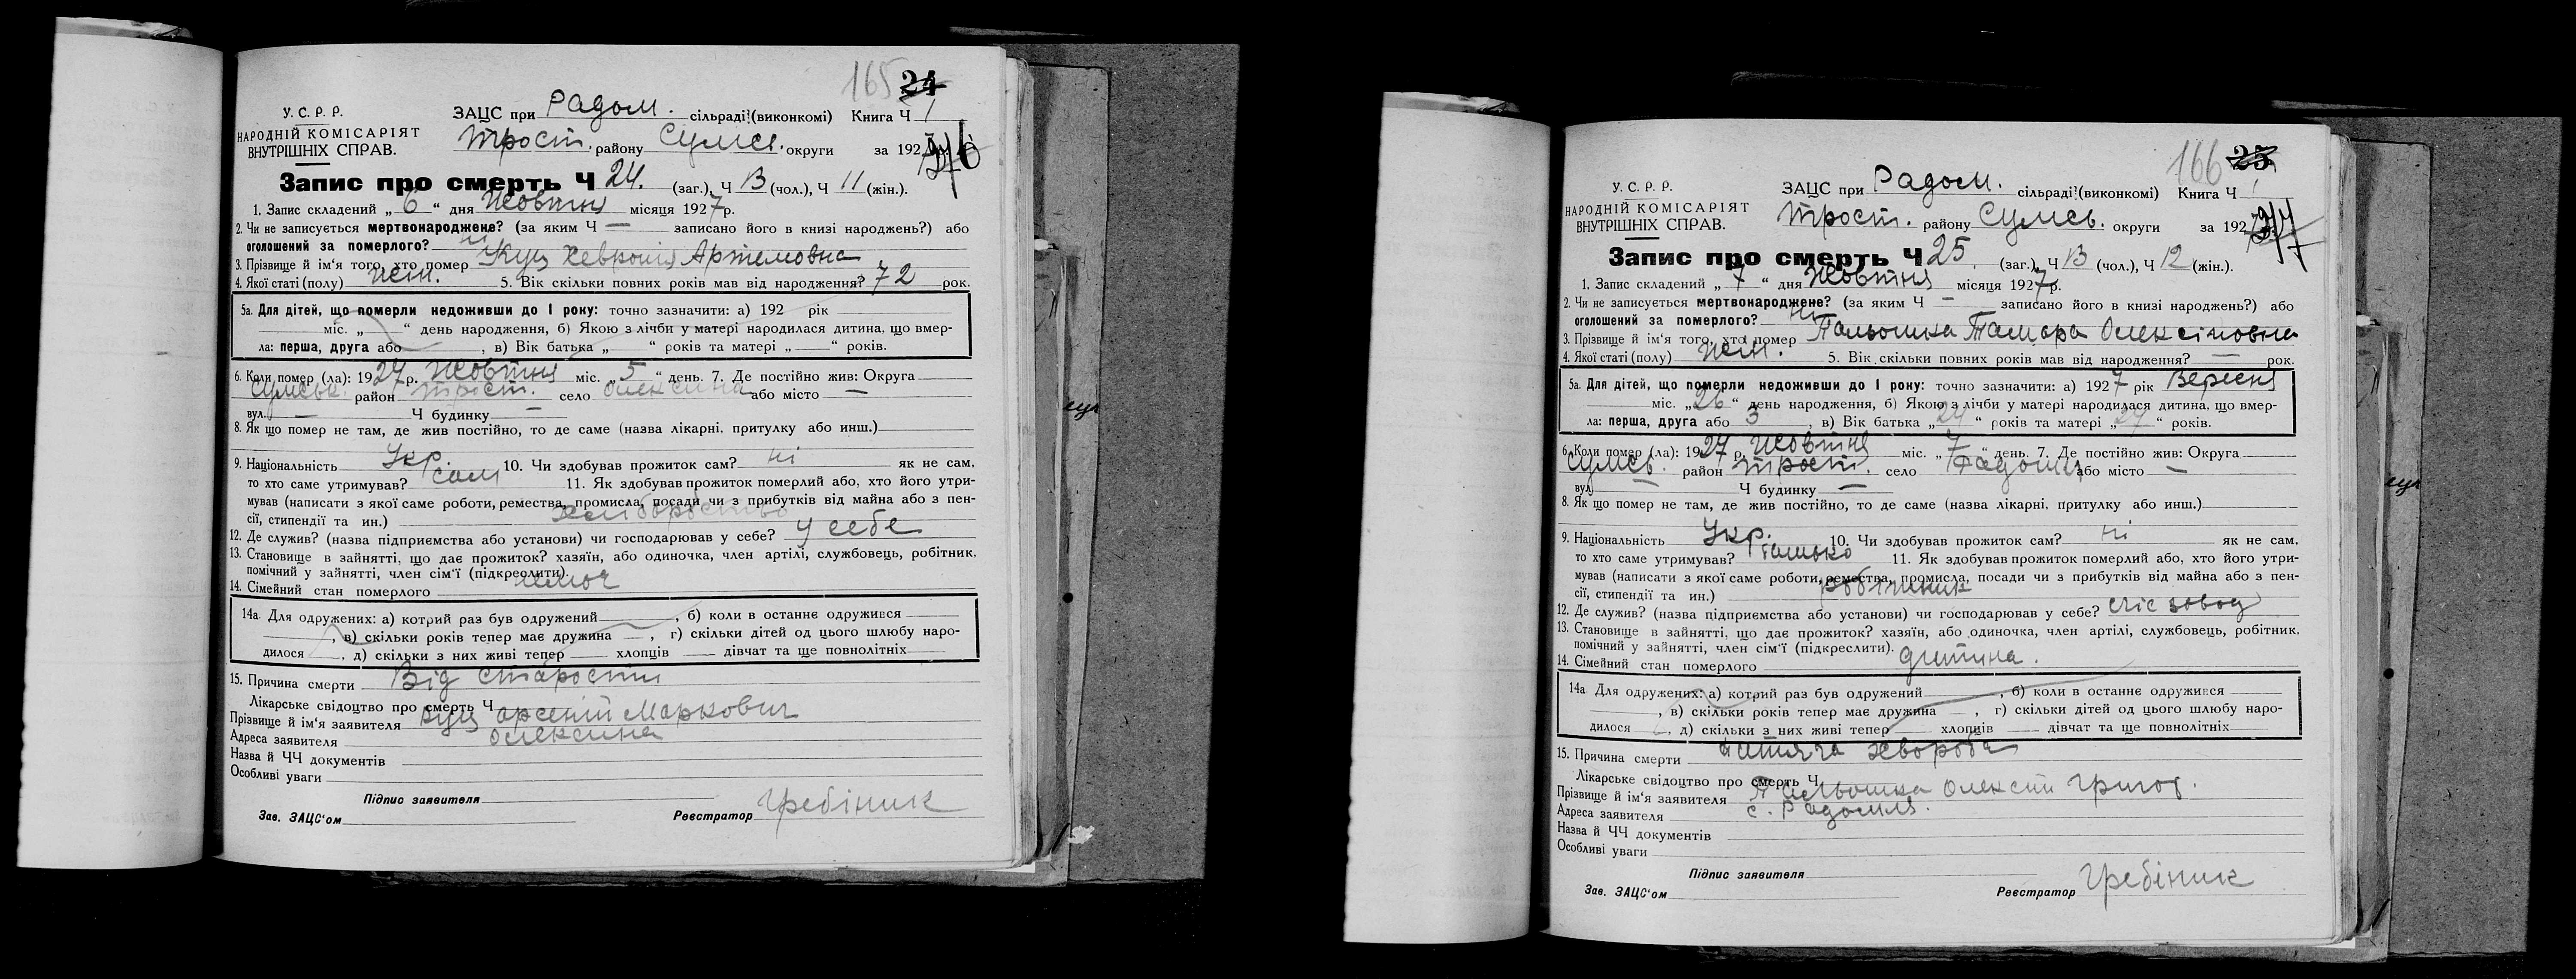 165 24
У. С. Р. Р.
НАРОДНІЙ КОМІСАРІЯТ
ВНУТРІШНІХ СПРАВ.
ЗАЦС при Радом. сільраді (виконкомі) Книга Ч 1
Трост. району Сумськ. округи за 1927 р.
Запис про смерть Ч 24. (заг.), Ч 13 (чол.), Ч 11 (жін.).
1. Запис складений „ 6 “ дня Жовтня місяця 1927 р.
2. Чи не записується мертвонароджене? (за яким Ч — записано його в книзі народжень?) або
оголошений за померлого? ні
3. Прізвище й ім'я того, хто помер Куц Хевронія Артемовна
4. Якої статі (полу) жін. 5. Вік скільки повних років мав від народження? 72 рок.
5а. Для дітей, що померли недоживши до 1 року: точно зазначити: а) 192 рік
міс. „ “ день народження, б) Якою з лічби у матері народилася дитина, що вмер-
ла: перша, друга або , в) Вік батька „ “ років та матері „ “ років.
6. Коли помер (ла): 1927 р. Жовтня міс. „ 5 “ день. 7. Де постійно жив: Округа
Сумськ. район Трост. село Олексина або місто —
вул. — Ч будинку —
8. Як що помер не там, де жив постійно, то де саме (назва лікарні, притулку або инш.)
9. Національність Укр. 10. Чи здобував прожиток сам? ні як не сам,
то хто саме утримував? сам 11. Як здобував прожиток померлий або, хто його утри-
мував (написати з якої саме роботи, ремества, промисла, посади чи з прибутків від майна або з пен-
сії, стипендії та ин.) хліборобство
12. Де служив? (назва підприємства або установи) чи господарював у себе? у себе
13. Становище в зайнятті, що дає прожиток? хазяїн, або одиночка, член артілі, службовець, робітник,
помічний у зайнятті, член сім'ї (підкреслити).
14. Сімейний стан померлого
14а. Для одружених: а) котрий раз був одружений , б) коли в останнє одружився
, в) скільки років тепер має дружина — , г) скільки дітей од цього шлюбу наро-
дилося , д) скільки з них живі тепер хлопців дівчат та ще повнолітніх
15. Причина смерти Від старости
Лікарське свідоцтво про смерть Ч
Прізвище й ім'я заявителя Куц Арсеній Маркович
Адреса заявителя Олексина
Назва й ЧЧ документів
Особливі уваги
Підпис заявителя
Зав. ЗАЦС'ом Реєстратор Гребіник
166 25
У. С. Р. Р.
НАРОДНІЙ КОМІСАРІЯТ
ВНУТРІШНІХ СПРАВ.
ЗАЦС при Радом. сільраді (виконкомі) Книга Ч 1
Трост. району Сумськ. округи за 1927
Запис про смерть Ч 25. (заг.), Ч 13 (чол.), Ч 12 (жін.).
1. Запис складений „ 7 “ дня Жовтня місяця 1927 р.
2. Чи не записується мертвонароджене? (за яким Ч — записано його в книзі народжень?) або
оголошений за померлого? ні
3. Прізвище й ім'я того, хто помер Пальошка Тамара Олексіповна
4. Якої статі (полу) жін. 5. Вік скільки повних років мав від народження? — рок.
5а. Для дітей, що померли недоживши до 1 року: точно зазначити: а) 1927 рік Вересня
міс. „ 26 “ день народження, б) Якою з лічби у матері народилася дитина, що вмер-
ла: перша, друга або 3 , в) Вік батька „ 24 “ років та матері „ 24 “ років.
6. Коли помер (ла): 1927 р. Жовтня міс. „ 7 “ день. 7. Де постійно жив: Округа
Сумськ. район Трост. село Радомля або місто —
вул. — Ч будинку —
8. Як що помер не там, де жив постійно, то де саме (назва лікарні, притулку або инш.)
9. Національність Укр. 10. Чи здобував прожиток сам? ні як не сам,
то хто саме утримував? батько 11. Як здобував прожиток померлий або, хто його утри-
мував (написати з якої саме роботи, ремества, промисла, посади чи з прибутків від майна або з пен-
сії, стипендії та ин.) робітник
12. Де служив? (назва підприємства або установи) чи господарював у себе? ліс завод
13. Становище в зайнятті, що дає прожиток? хазяїн, або одиночка, член артілі, службовець, робітник,
помічний у зайнятті, член сім'ї (підкреслити).
14. Сімейний стан померлого дитина.
14а. Для одружених: а) котрий раз був одружений , б) коли в останнє одружився
, в) скільки років тепер має дружина — , г) скільки дітей од цього шлюбу наро-
дилося , д) скільки з них живі тепер хлопців дівчат та ще повнолітніх
15. Причина смерти дитяча хвороба
Лікарське свідоцтво про смерть Ч
Прізвище й ім'я заявителя Пальошка Олексій Григор.
Адреса заявителя с. Радомля.
Назва й ЧЧ документів
Особливі уваги
Підпис заявителя
Зав. ЗАЦС'ом Реєстратор Гребіник